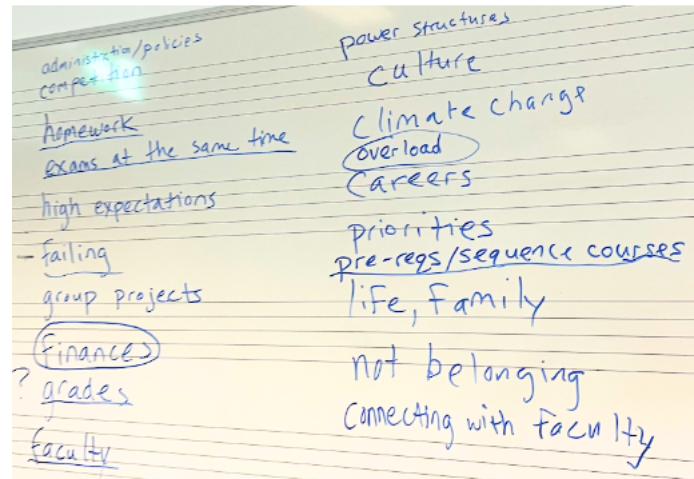 administration/policies
competition
homework
exams at the same time
high expectations
- failing
group projects
finances
? grades
faculty
power structures
culture
climate change
overload
careers
priorities
pre-reqs/sequence courses
life, family
not belonging
connecting with faculty